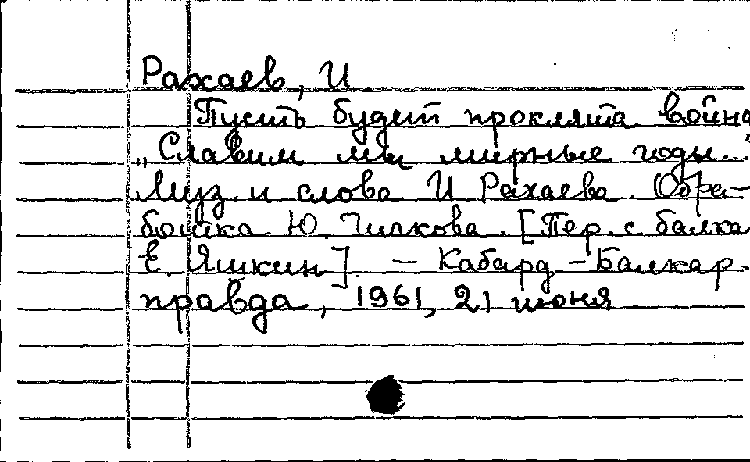 Рахаев, И
Пусть будет проклята война
„Славим мы мирные годы..."
Муз. и слова И Рахаева. Обра-
ботка Ю. Чилкова. [Пер. с балка
Е. Яшкин] – Кабард – Балкар.
правда, 1961, 21 июня